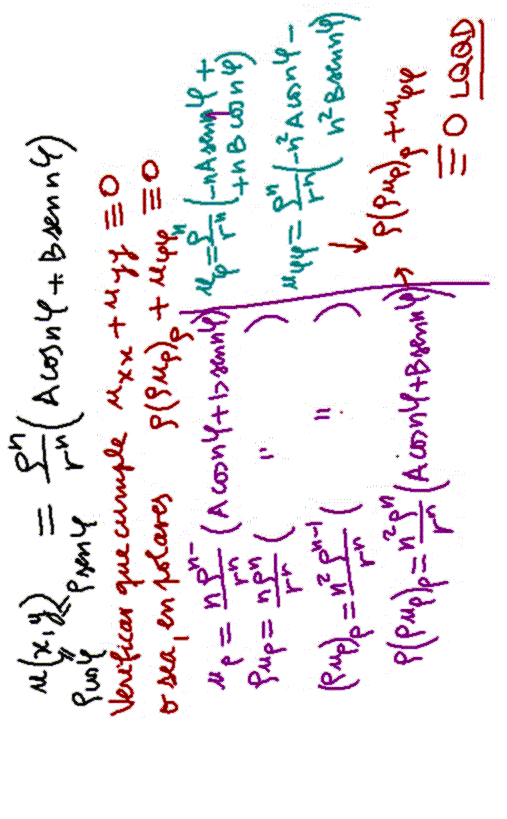 u(x,y) = ρⁿ/rⁿ (A cos nφ + B sen nφ)
ρcosφ ρ sen φ
Verificar que cumple u_xx + u_yy ≡ 0
o sea, en polares ρ(ρu_ρ)_ρ + u_φφ ≡ 0
u_ρ = n ρⁿ⁻/rⁿ (A cos nφ + B sen nφ)
ρu_ρ = n ρⁿ/rⁿ ( " )
(ρu_ρ)_ρ = n² ρⁿ⁻¹/rⁿ ( " )
ρ(ρu_ρ)_ρ = n² ρⁿ/rⁿ (A cos nφ + B sen nφ)
u_φ = ρⁿ/rⁿ (-nA sen nφ +
+ nB cos nφ)
u_φφ = ρⁿ/rⁿ (-n² A cos nφ -
n² B sen nφ)
ρ(ρu_ρ)_ρ + u_φφ
≡ 0 LQQD